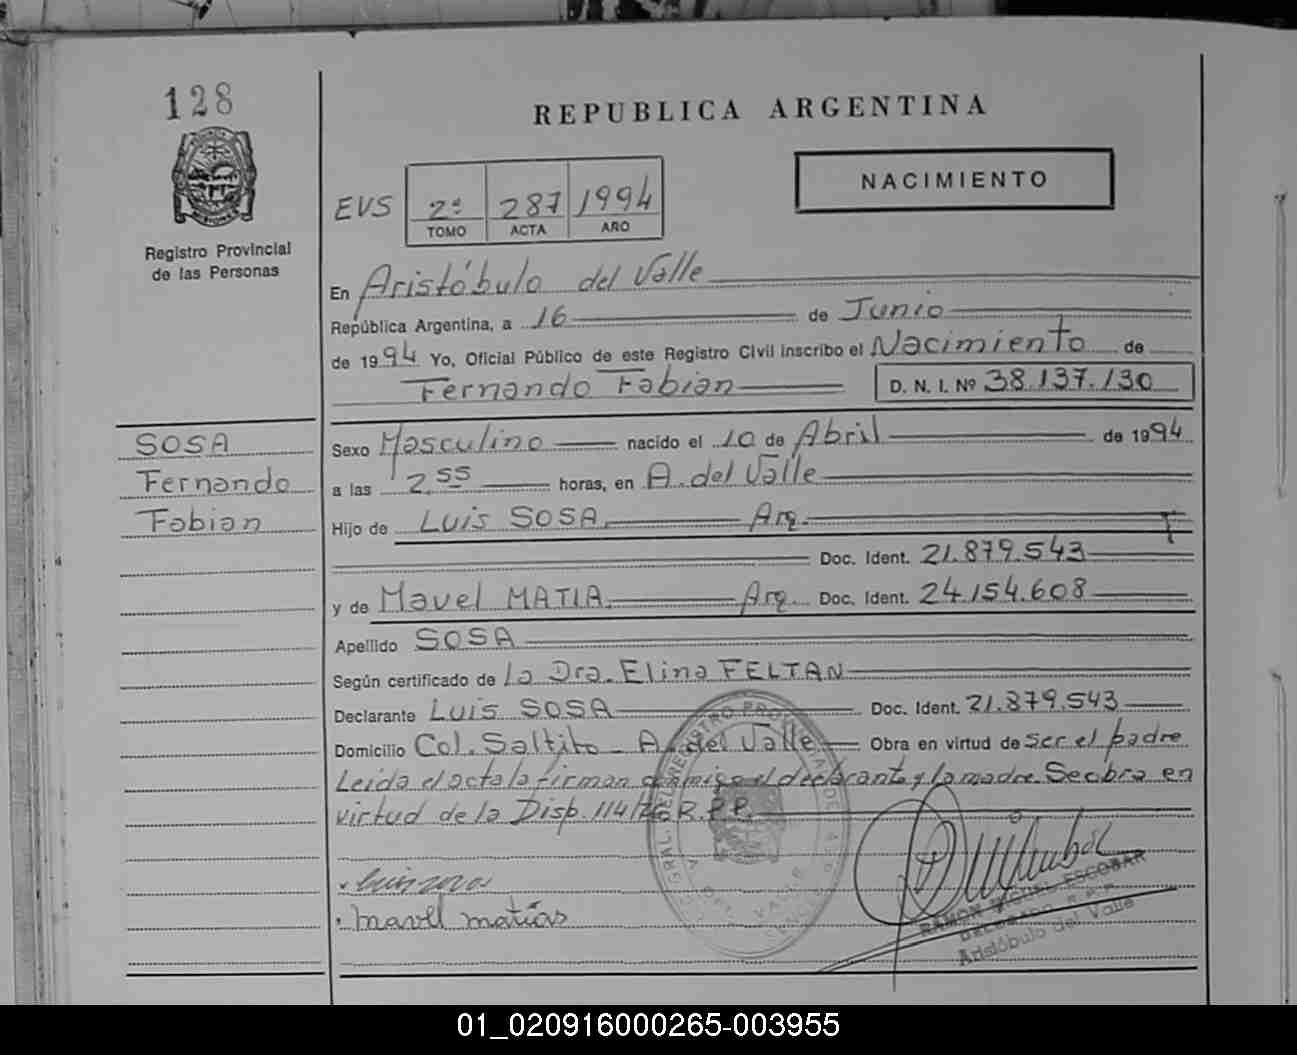 128
REPUBLICA ARGENTINA
NACIMIENTO
EVS 2º 287 1994
TOMO ACTA AÑO
Registro Provincial
de las Personas
En Aristóbulo del Valle
República Argentina, a 16 de Junio
de 1994 Yo, Oficial Público de este Registro Civil inscribo el Nacimiento de
Fernando Fabian D. N. I. Nº 38.137.130
SOSA
Fernando
Fabian
Sexo Masculino nacido el 10 de Abril de 1994
a las 2,55 horas, en A. del Valle
Hijo de Luis SOSA Arg.
Doc. Ident. 21.879.543
y de Mavel MATIA Arg. Doc. Ident. 24.154.608
Apellido SOSA
Según certificado de la Dra. Elina FELTAN
Declarante Luis SOSA Doc. Ident. 21.879.543
Domicilio Col. Saltito - A. del Valle Obra en virtud de ser el padre
Leida el acta la firman conmigo el declarante y la madre. Se obra en
virtud de la Disp. 114/76 R.P.P.
Luis sosa
mavel matias
RAMON MIGUEL ESCOBAR
DELEGADO R.P.P.
Aristóbulo del Valle
01_020916000265-003955